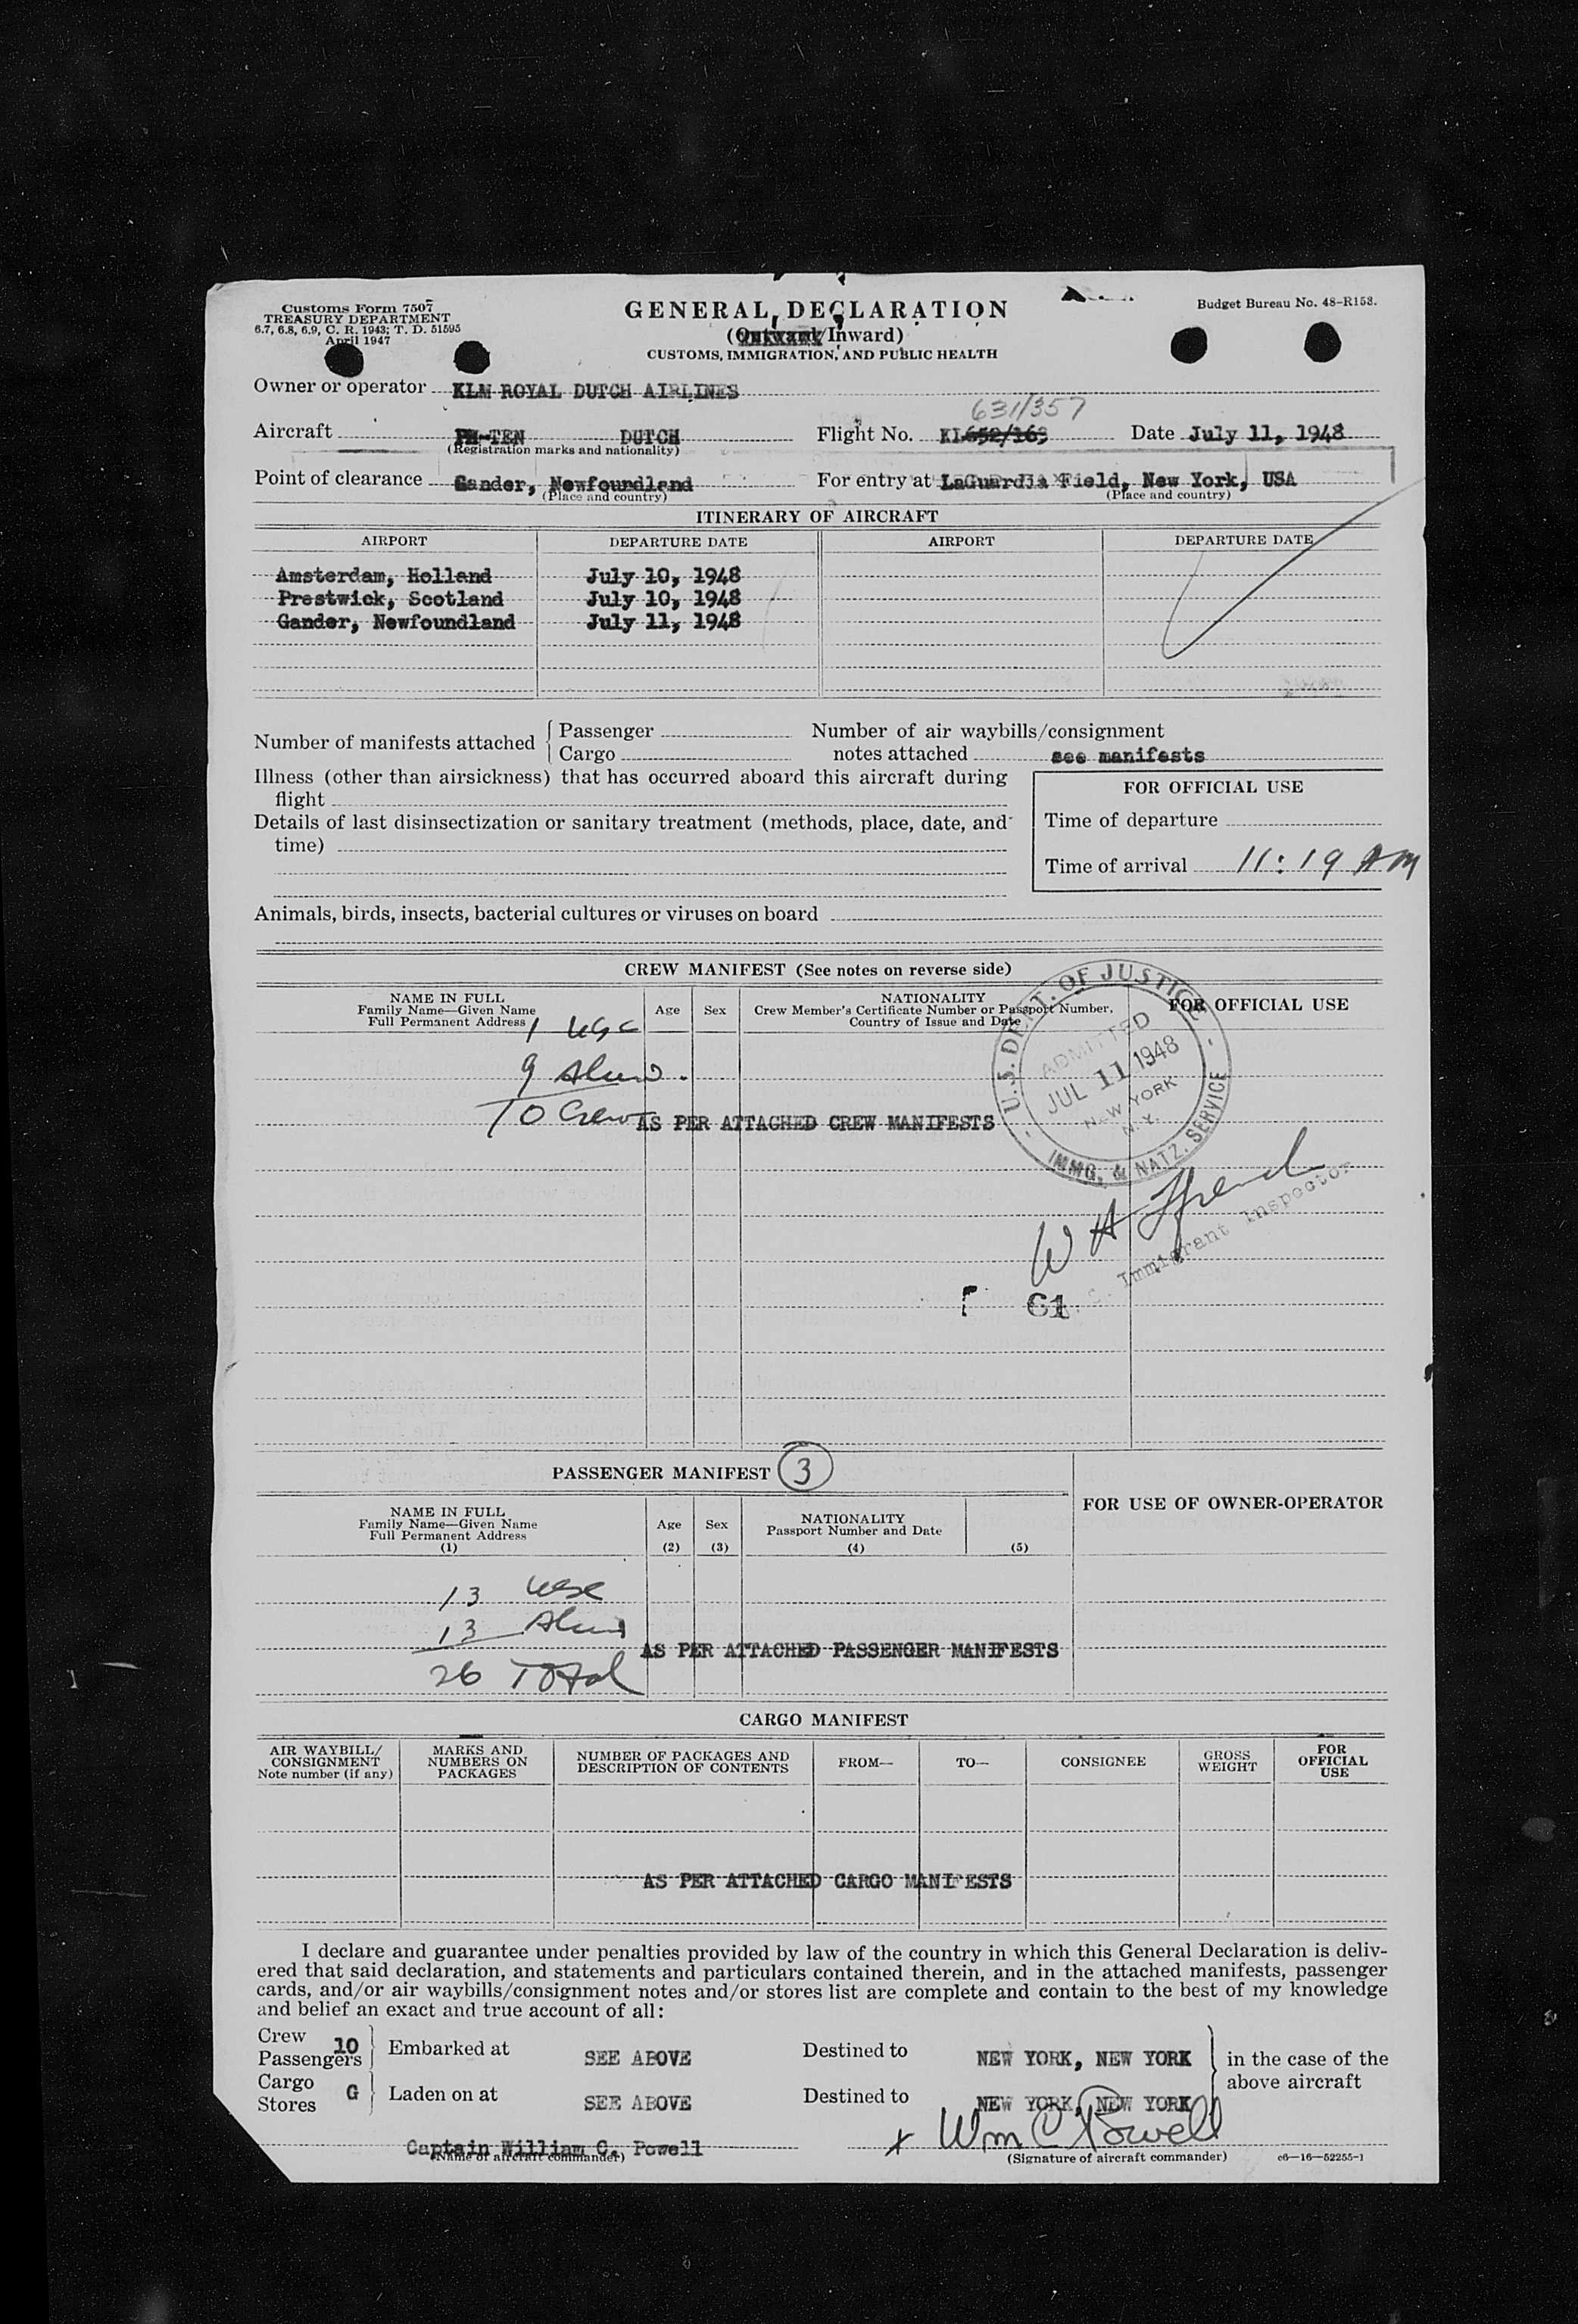 Customs Form 7507
TREASURY DEPARTMENT
6.7, 6.8, 6.9, C. R. 1943; T. D. 51595
April 1947
GENERAL DECLARATION
(Outward/Inward)
CUSTOMS, IMMIGRATION, AND PUBLIC HEALTH
Budget Bureau No. 48-R153.
Owner or operator KLM ROYAL DUTCH AIRLINES
631/357
Aircraft PH-TEN DUTCH Flight No. KL652/163 Date July 11, 1948
(Registration marks and nationality)
Point of clearance Gander, Newfoundland For entry at LaGuardia Field, New York, USA
(Place and country) (Place and country)
ITINERARY OF AIRCRAFT
AIRPORT DEPARTURE DATE AIRPORT DEPARTURE DATE
Amsterdam, Holland July 10, 1948
Prestwick, Scotland July 10, 1948
Gander, Newfoundland July 11, 1948
Number of manifests attached { Passenger
Cargo
Number of air waybills/consignment
notes attached see manifests
Illness (other than airsickness) that has occurred aboard this aircraft during
flight
Details of last disinsectization or sanitary treatment (methods, place, date, and
time)
FOR OFFICIAL USE
Time of departure
Time of arrival 11:19 AM
Animals, birds, insects, bacterial cultures or viruses on board
CREW MANIFEST (See notes on reverse side)
NAME IN FULL
Family Name—Given Name
Full Permanent Address
Age
Sex
NATIONALITY
Crew Member's Certificate Number or Passport Number,
Country of Issue and Date
FOR OFFICIAL USE
1 USC
9 Aliens
10 Crew
AS PER ATTACHED CREW MANIFESTS
U.S. DEPT. OF JUSTICE
ADMITTED
JUL 11 1948
NEW YORK
N.Y.
IMMG. & NATZ. SERVICE
Immigrant Inspector
61
PASSENGER MANIFEST 3
FOR USE OF OWNER-OPERATOR
NAME IN FULL
Family Name—Given Name
Full Permanent Address
(1)
Age
(2)
Sex
(3)
NATIONALITY
Passport Number and Date
(4)
(5)
13 USC
13 Aliens
26 Total
AS PER ATTACHED PASSENGER MANIFESTS
CARGO MANIFEST
AIR WAYBILL/
CONSIGNMENT
Note number (if any)
MARKS AND
NUMBERS ON
PACKAGES
NUMBER OF PACKAGES AND
DESCRIPTION OF CONTENTS
FROM—
TO—
CONSIGNEE
GROSS
WEIGHT
FOR
OFFICIAL
USE
AS PER ATTACHED CARGO MANIFESTS
I declare and guarantee under penalties provided by law of the country in which this General Declaration is deliv-
ered that said declaration, and statements and particulars contained therein, and in the attached manifests, passenger
cards, and/or air waybills/consignment notes and/or stores list are complete and contain to the best of my knowledge
and belief an exact and true account of all:
Crew 10
Passengers
Embarked at SEE ABOVE Destined to NEW YORK, NEW YORK
in the case of the
above aircraft
Cargo
Stores G
Laden on at SEE ABOVE Destined to NEW YORK, NEW YORK
Captain William C. Powell
(Name of aircraft commander)
x Wm C Powell
(Signature of aircraft commander)
c6—16—52255-1